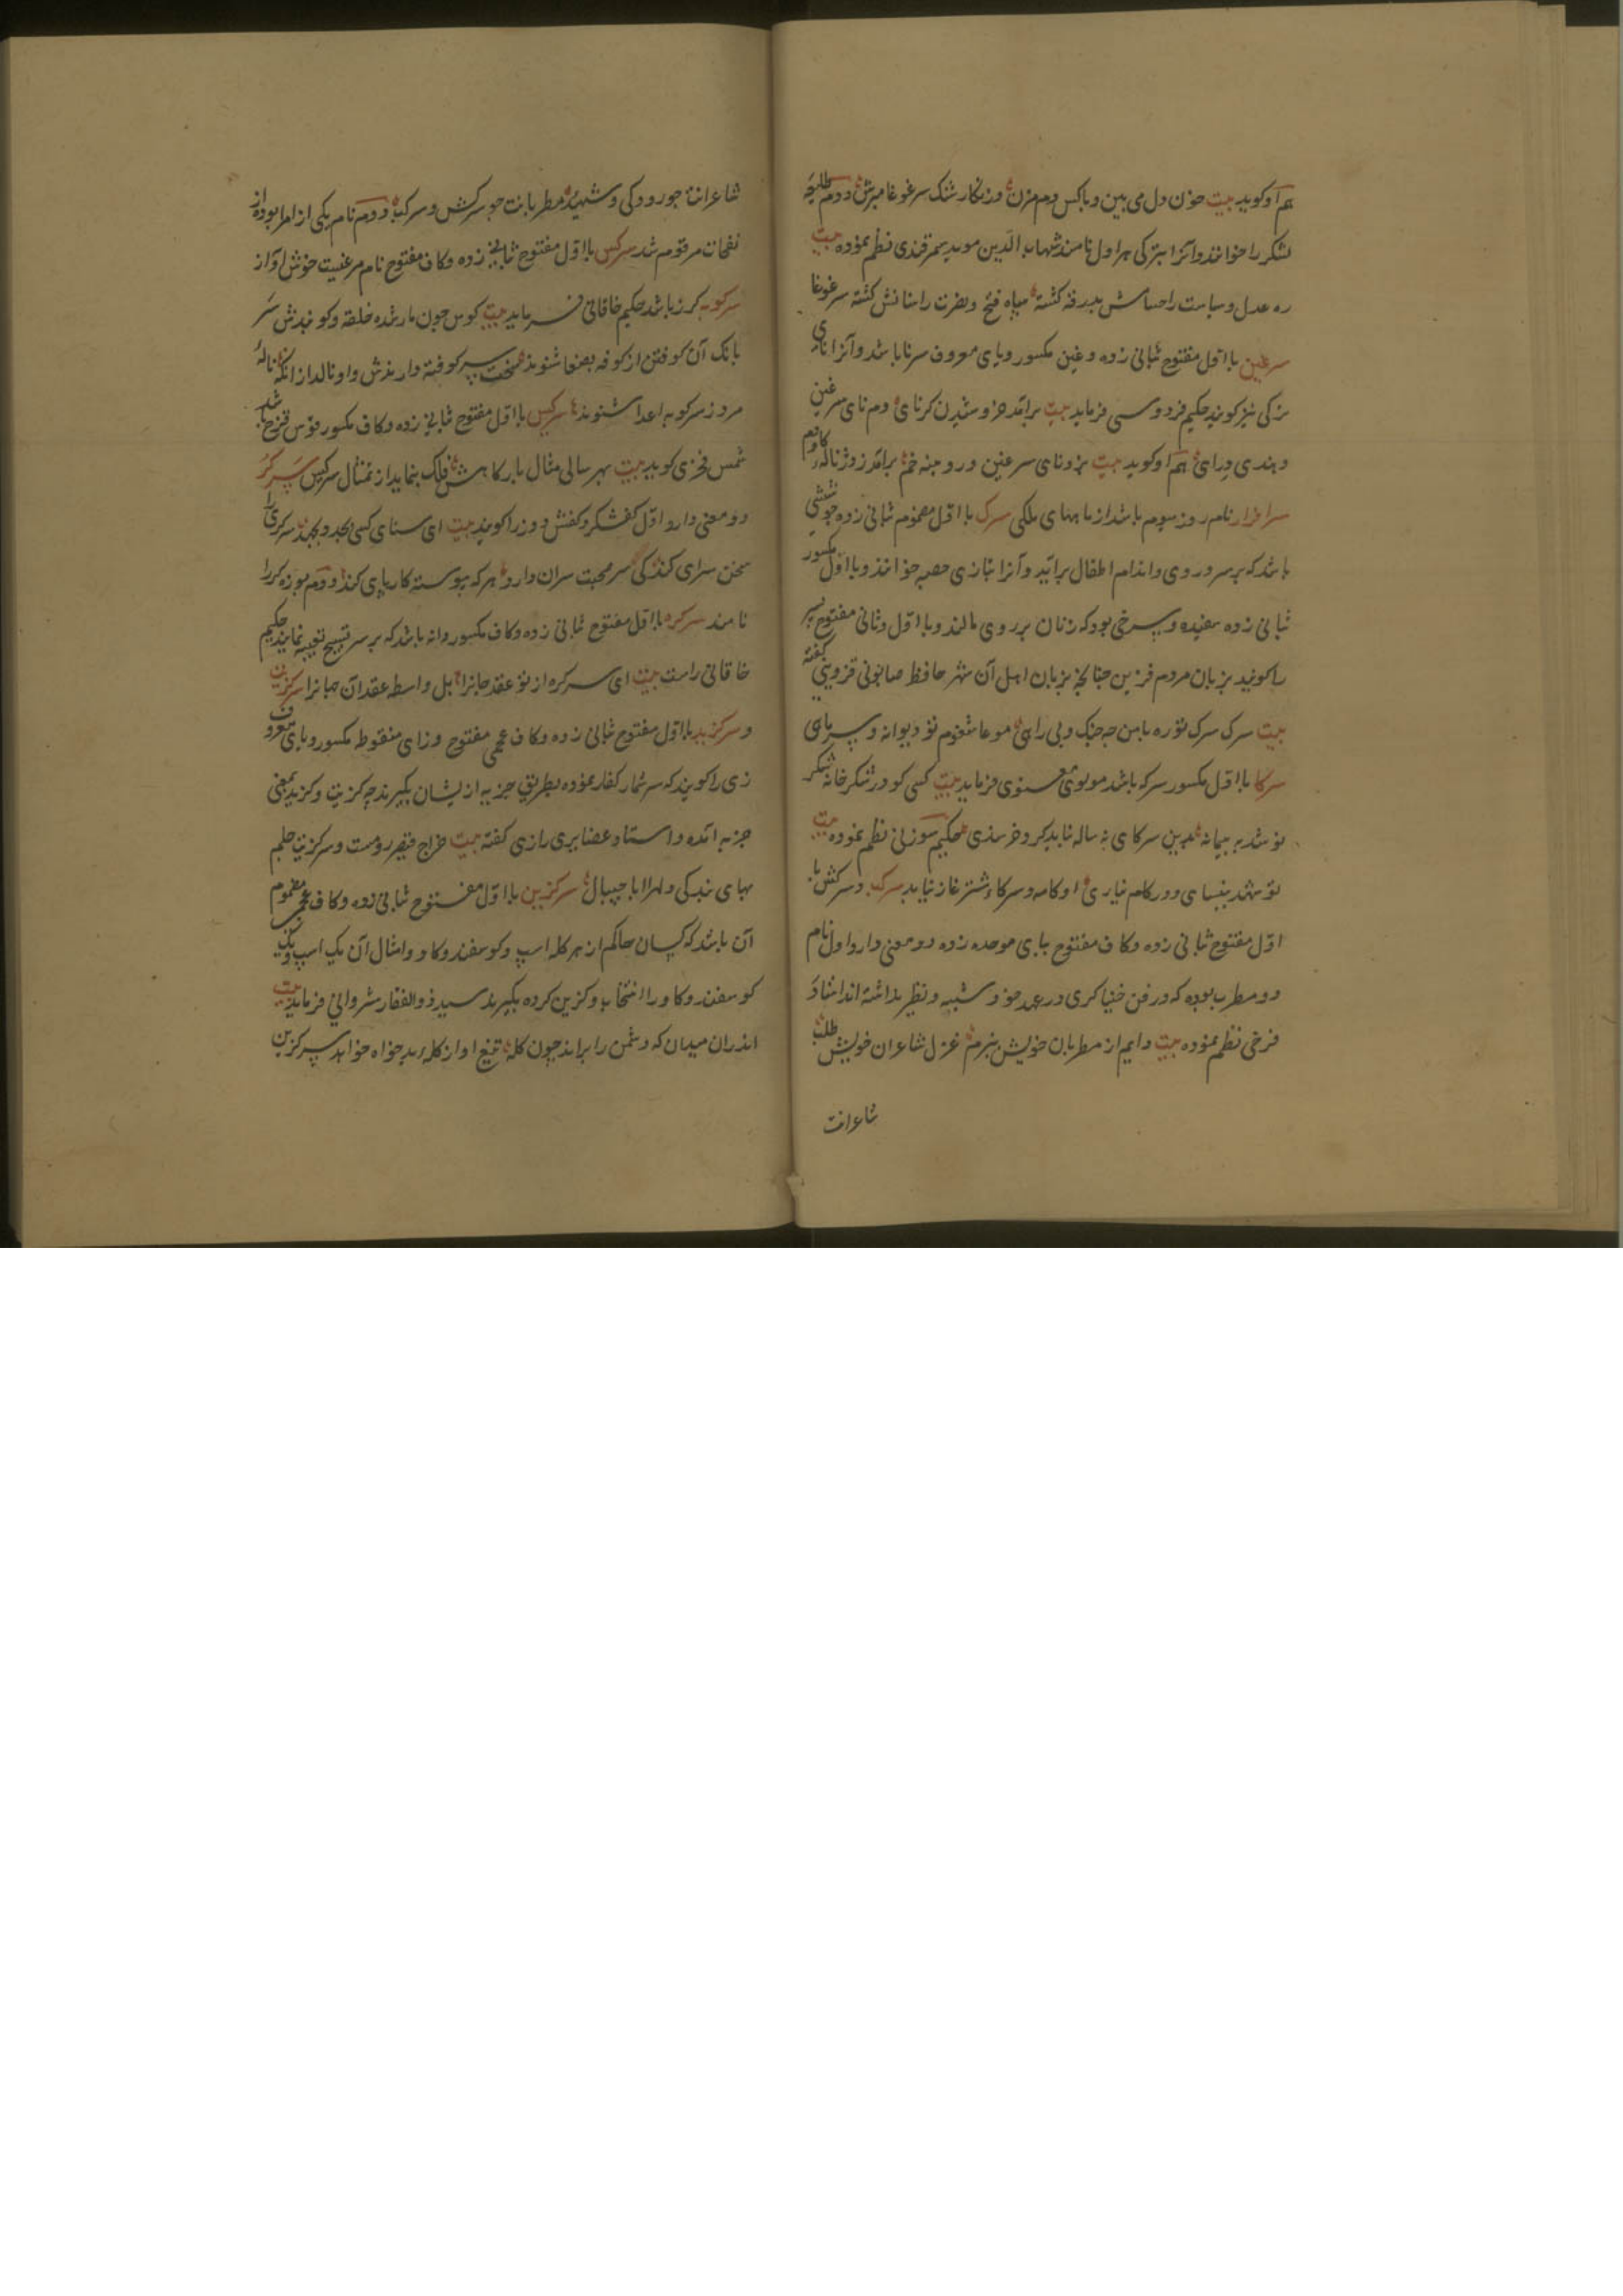 هم او کوید بیت خون دل می بین و باکس دم مزن وز نکار شنک سرغوغا مپرس دوم طلیعه
لشکر را خوانند و آنرا بترکی هراول نامند شهاب الدین موید سمرقندی نظم نموده بیت
ره عدل و سیاست را حسامش بدرقه کشته سپاه فتح و نصرت را سنانش کشته سرغوغا
سرغین با اول مفتوح بثانی زده و غین مکسور و یای معروف سرنا باشد و آنرا نای
ترکی نیز کویند حکیم فردوسی فرماید بیت برآمد خروشیدن کرنای دم نای سرغین
و هندی درای هم او کوید بیت بزد نای سرغین و رویینه خم برآمد ز و ژناله کاودم
سرافراز نام روز سوم باشد از ماههای ملکی سرک با اول مضموم بثانی زده جوششی
باشد که بر سر و روی و اندام اطفال برآید و آنرا بتازی حصبه خوانند و با اول مکسور
بثانی زده سفیده و سرخی بود که زنان بر روی مالند و با اول و ثانی مفتوح سر
را کویند بزبان مردم قزوین چنانچه بزبان اهل آن شهر حافظ صابونی قزوینی کفته
بیت سرک سرک توره بامن چه جنک و بی راهی موعاشقوم تو دیوانه و سرپای
سرکا با اول مکسور سرکه باشد مولوی معنوی فرماید بیت کسی کو در شکرخانه شکر
نوشد به پیمانه بدین سرکای نه ساله نابد کرد خرسندی حکیم سوزنی نظم نموده بیت
تو شهد بنسای و در کامه نیاری او کامه و سرکاء شتر غاز نیابد سرکب و سرکش با
اول مفتوح ثانی زده و کاف مفتوح ببای موحده زده دو معنی دارد اول نام
دو مطرب بوده که در فن خنیاکری در عهد خود شبیه و نظیر نداشته اند استاد
فرخی نظم نموده بیت دایم از مطربان خویش ببزم غزل شاعران خویش طلب
شاعرانت
شاعرانت چو رودکی و شهید مطربانت چو سرکش و سرکب دوم نام یکی از امرا بوده از
نفحات مرقوم شد سرکس با اول مفتوح بثانی زده و کاف مفتوح نام مرغیست خوش آواز
سرکوبه کرز باشد حکیم خاقانی فرماید بیت کوس چون مار شده حلقه و کوبندش سر
بانک آن کوفتن از کوفه بصنعا شنوند سخت سرکوفته دارندش و او نالد از آنک ناله
مرد ز سرکوبه اعدا شنوند سرکیس با اول مفتوح بثانی زده و کاف مکسور قوس قزح باشد
شمس فخری کوید بیت بهر سالی مثال بارکاهش فلک بنماید از تمثال سرکیس سرکر
دو معنی دارد اول کفشکر و کفش دوز را کویند بیت ای سنای کسی بجد و بجهد سرکری را
سخن سرای کند کی سر صحبت سران دارد هر که پیوسته کار پای کند دوم بوزه کر را
نامند سرکره با اول مفتوح بثانی زده و کاف مکسور دانه باشد که بر سر تسبیح تعبیه نمایند حکیم
خاقانی راست بیت ای سرکره از تو عقد جانرا بل واسطه عقد آن جانرا سرکزیت
و سرکزید با اول مفتوح بثانی زده و کاف عجمی مفتوح و زای منقوط مکسور و یای معروف
زری را کویند که سر شمار کفار نموده بطریق جزیه از ایشان بکیرند چه کزیت و کزید بمعنی
جزیه آمده و استاد عضایری رازی کفته بیت خراج قیصر رومست و سرکزیت حلم
بهای بندکی دلهرا با جیپال سرکزین با اول مفتوح بثانی زده و کاف عجمی مضموم
آن باشد که کسان حاکم از هر کله اسپ و کوسفند و کاو و امثال آن یک اسپ و یک
کوسفند و کاو را انتخاب و کزین کرده بکیرند سید ذوالفقار شروانی فرماید بیت
اندران میدان که دشمن را براند چون کله تیغ او از کله او بدخواه خواهد سرکزین